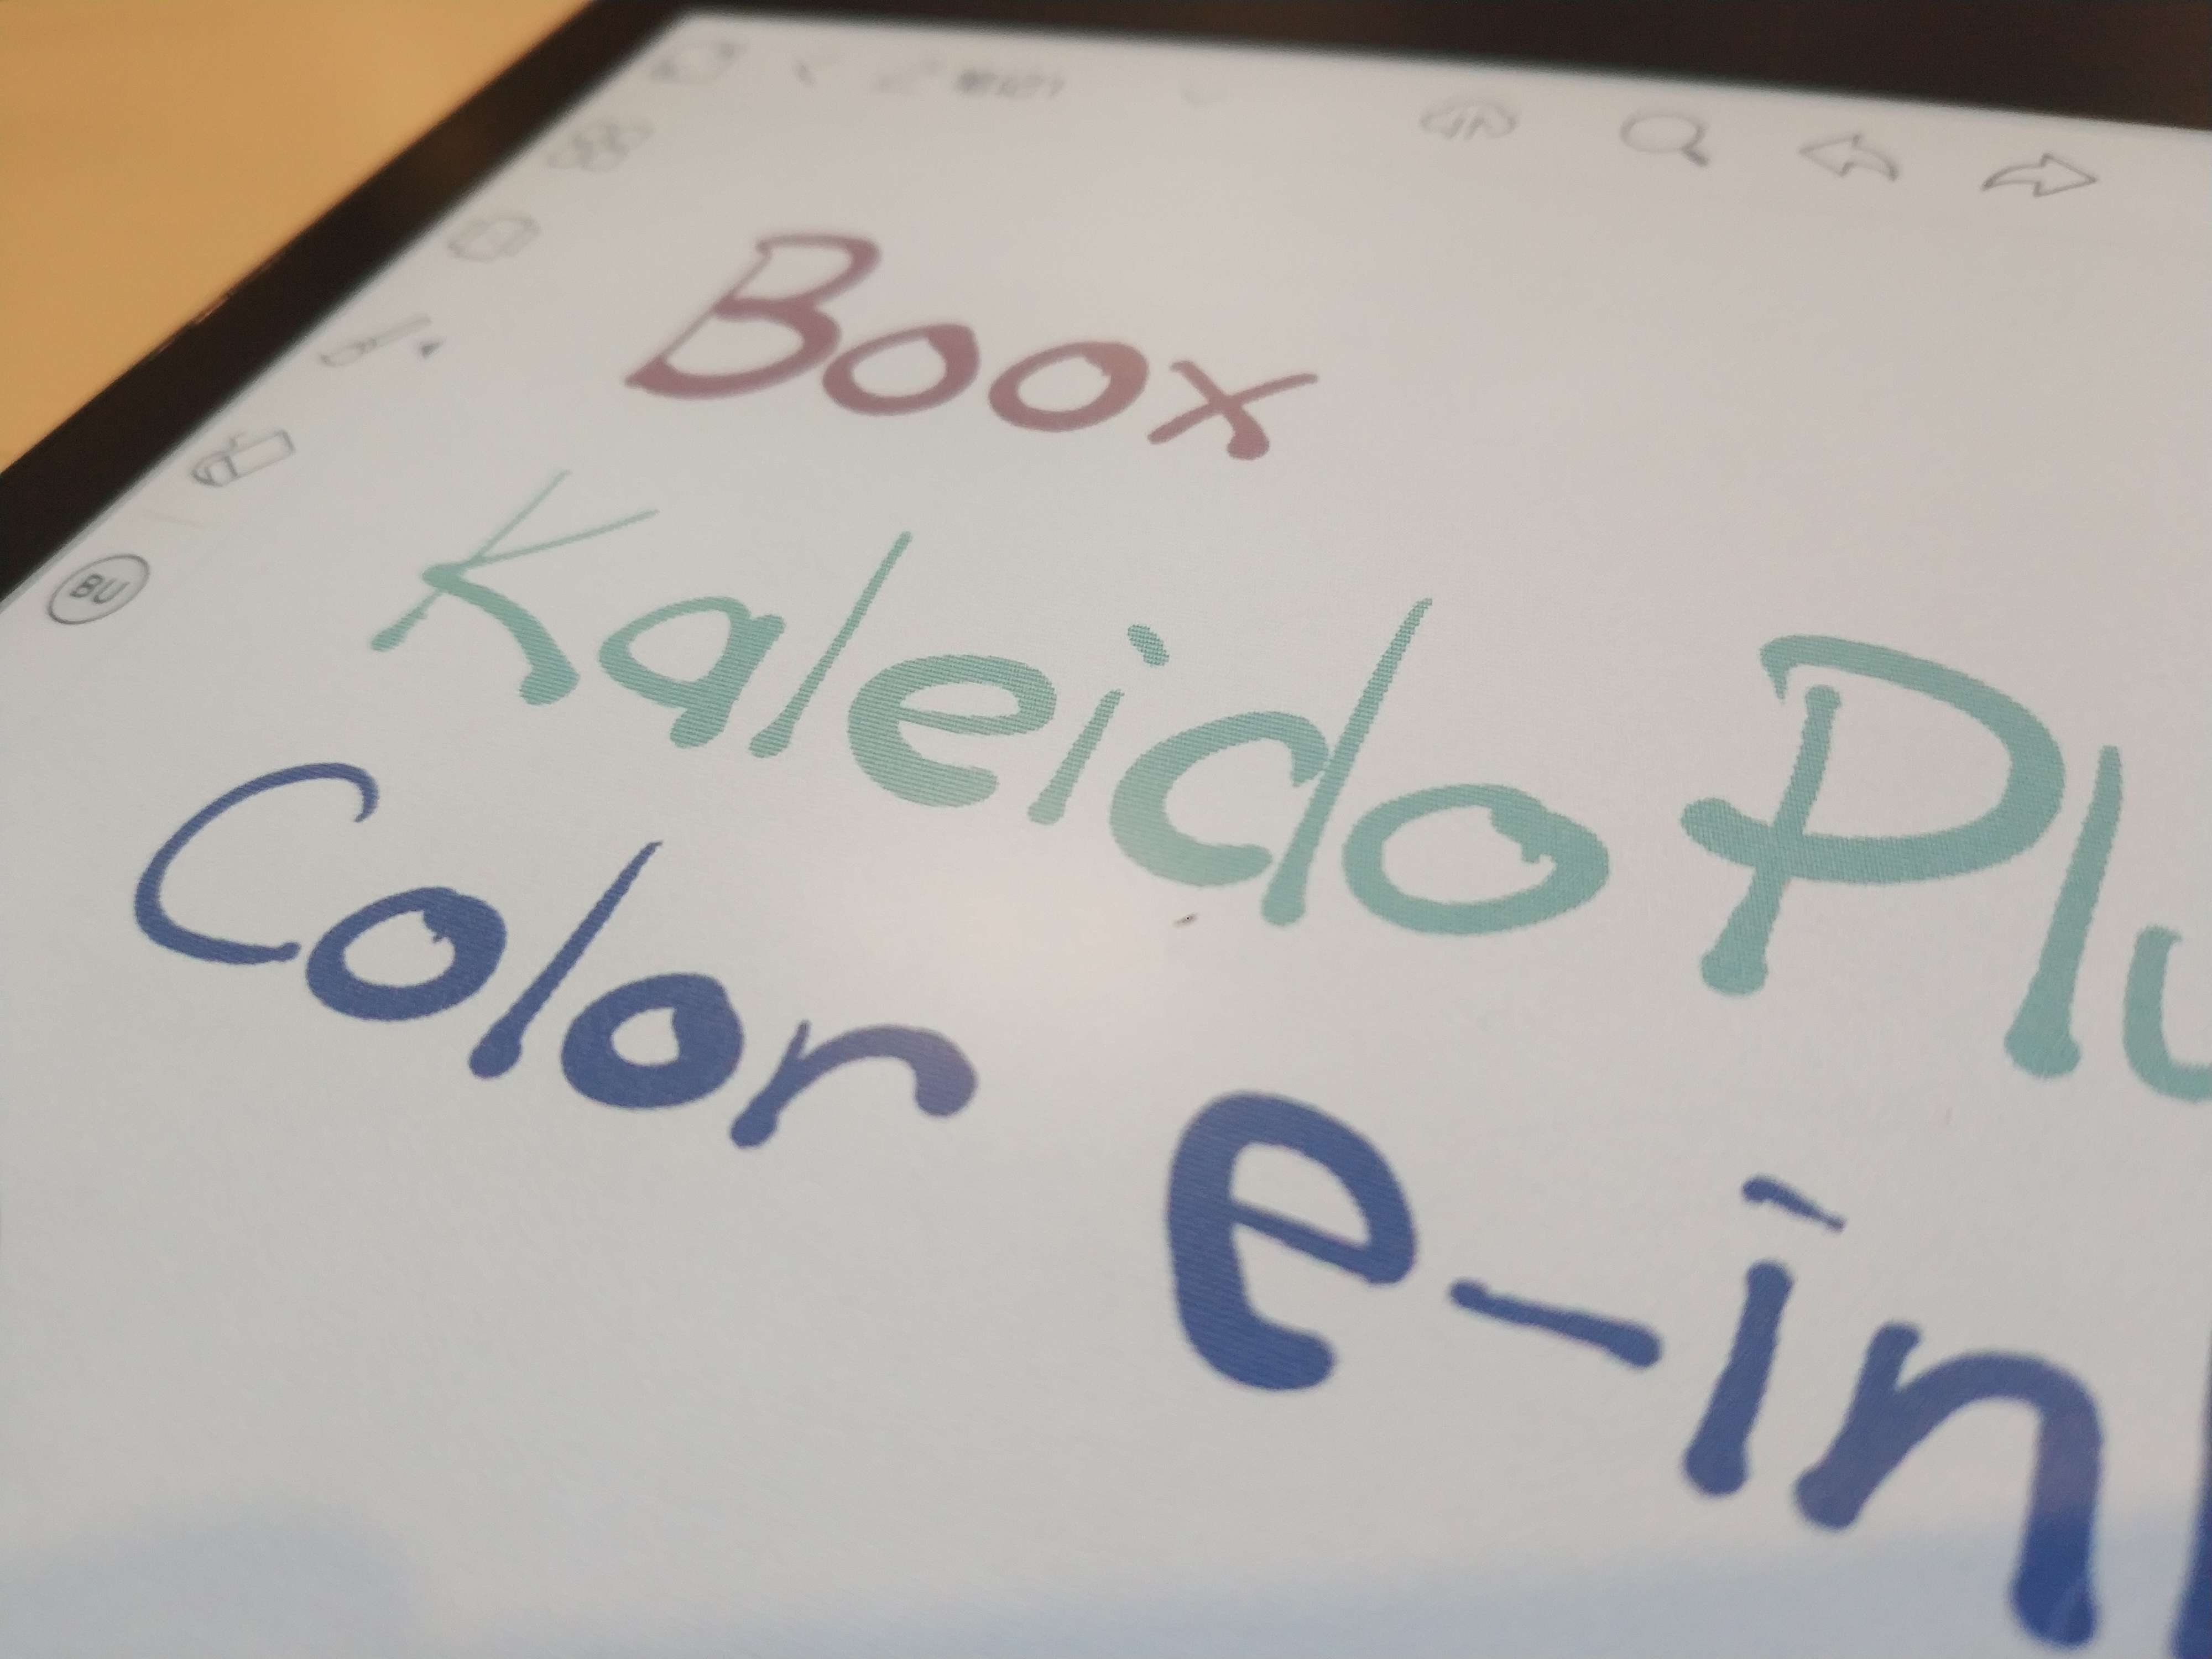 BU
Boox
Kaleido Plu
Color e-in